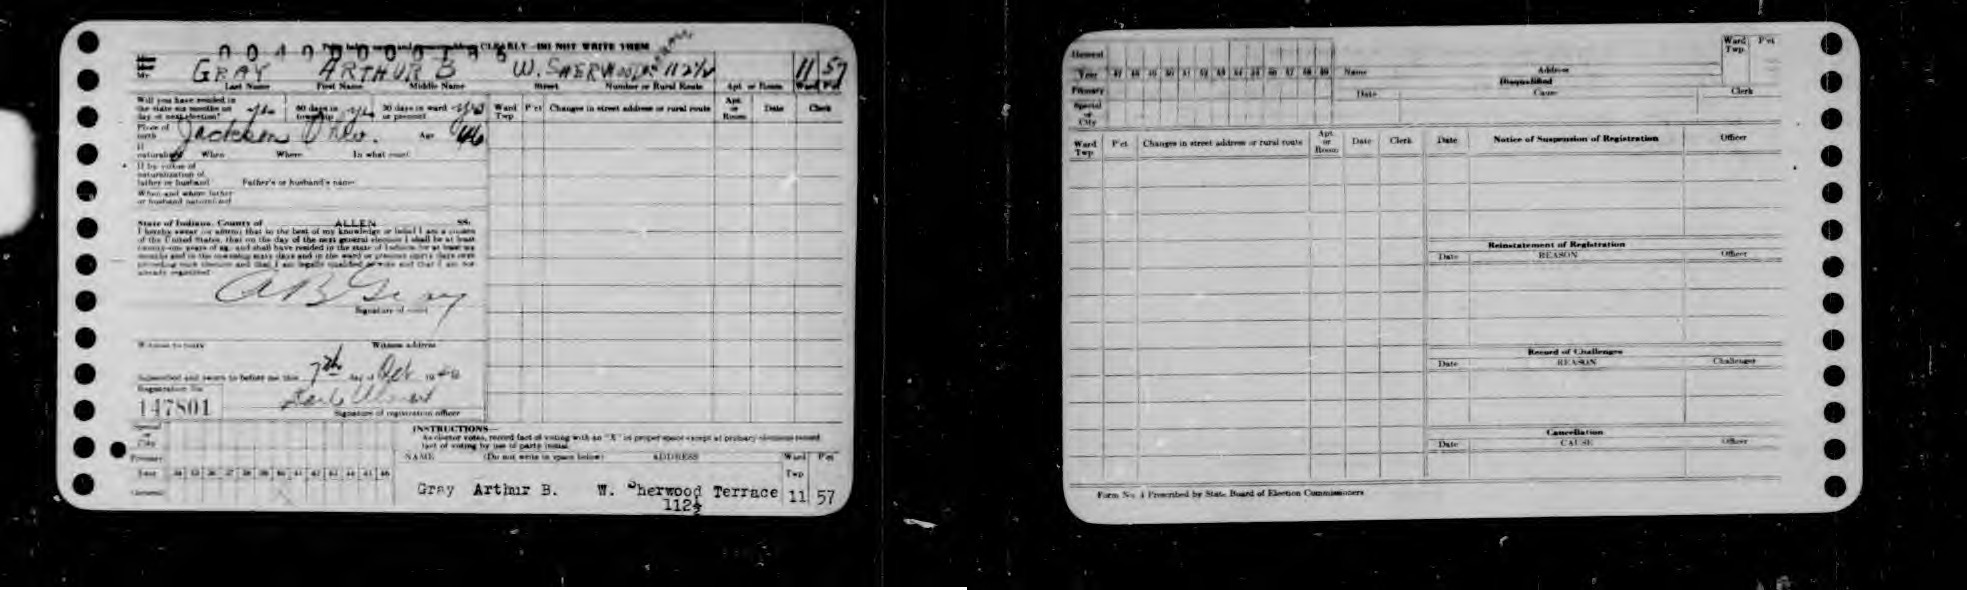 CLEARLY—DO NOT WRITE THEM
GRAY ARTHUR B W. SHERWOOD 112½ 11 57
Mr. Last Name First Name Middle Name Street Number or Rural Route Apt. or Room Ward P'ct
Will you have resided in the state six months on day of next election? yes 60 days in township yes 30 days in ward or precinct yes
Ward Twp P'ct Changes in street address or rural route Apt. or Room Date Clerk
Place of birth Jackson Ohio. Age 46
If naturalized When Where In what court
If by virtue of naturalization of father or husband Father's or husband's name
When and where father or husband naturalized
State of Indiana, County of ALLEN SS.
I hereby swear (or affirm) that to the best of my knowledge or belief I am a citizen
of the United States, that on the day of the next general election I shall be at least
twenty-one years of age and shall have resided in the state of Indiana for at least six
months and in the township sixty days and in the ward or precinct thirty days next
preceding such election and that I am legally qualified to vote and that I am not
already registered
A B Gray
Signature of voter
Witness to voter Witness address
Subscribed and sworn to before me this 7th day of Oct 19
Registration No.
147801
Signature of registration officer
INSTRUCTIONS—
As elector votes, record fact of voting with an "X" in proper space except at primary elections record
fact of voting by use of party initial.
NAME (Do not write in space below) ADDRESS Ward Twp P'ct
Special or City
Primary
Year 34 35 36 37 38 39 40 41 42 43 44 45 46
General
Gray Arthur B. W. Sherwood Terrace 11 57
112½
General
Year 47 48 49 50 51 52 53 54 55 56 57 58 59
Primary
Special or City
Name Address Ward Twp P'ct
Disqualified
Date Cause Clerk
Ward Twp P'ct Changes in street address or rural route Apt. or Room Date Clerk
Date Notice of Suspension of Registration Officer
Reinstatement of Registration
Date REASON Officer
Record of Challenges
Date REASON Challenger
Cancellation
Date CAUSE Officer
Form No. 4 Prescribed by State Board of Election Commissioners